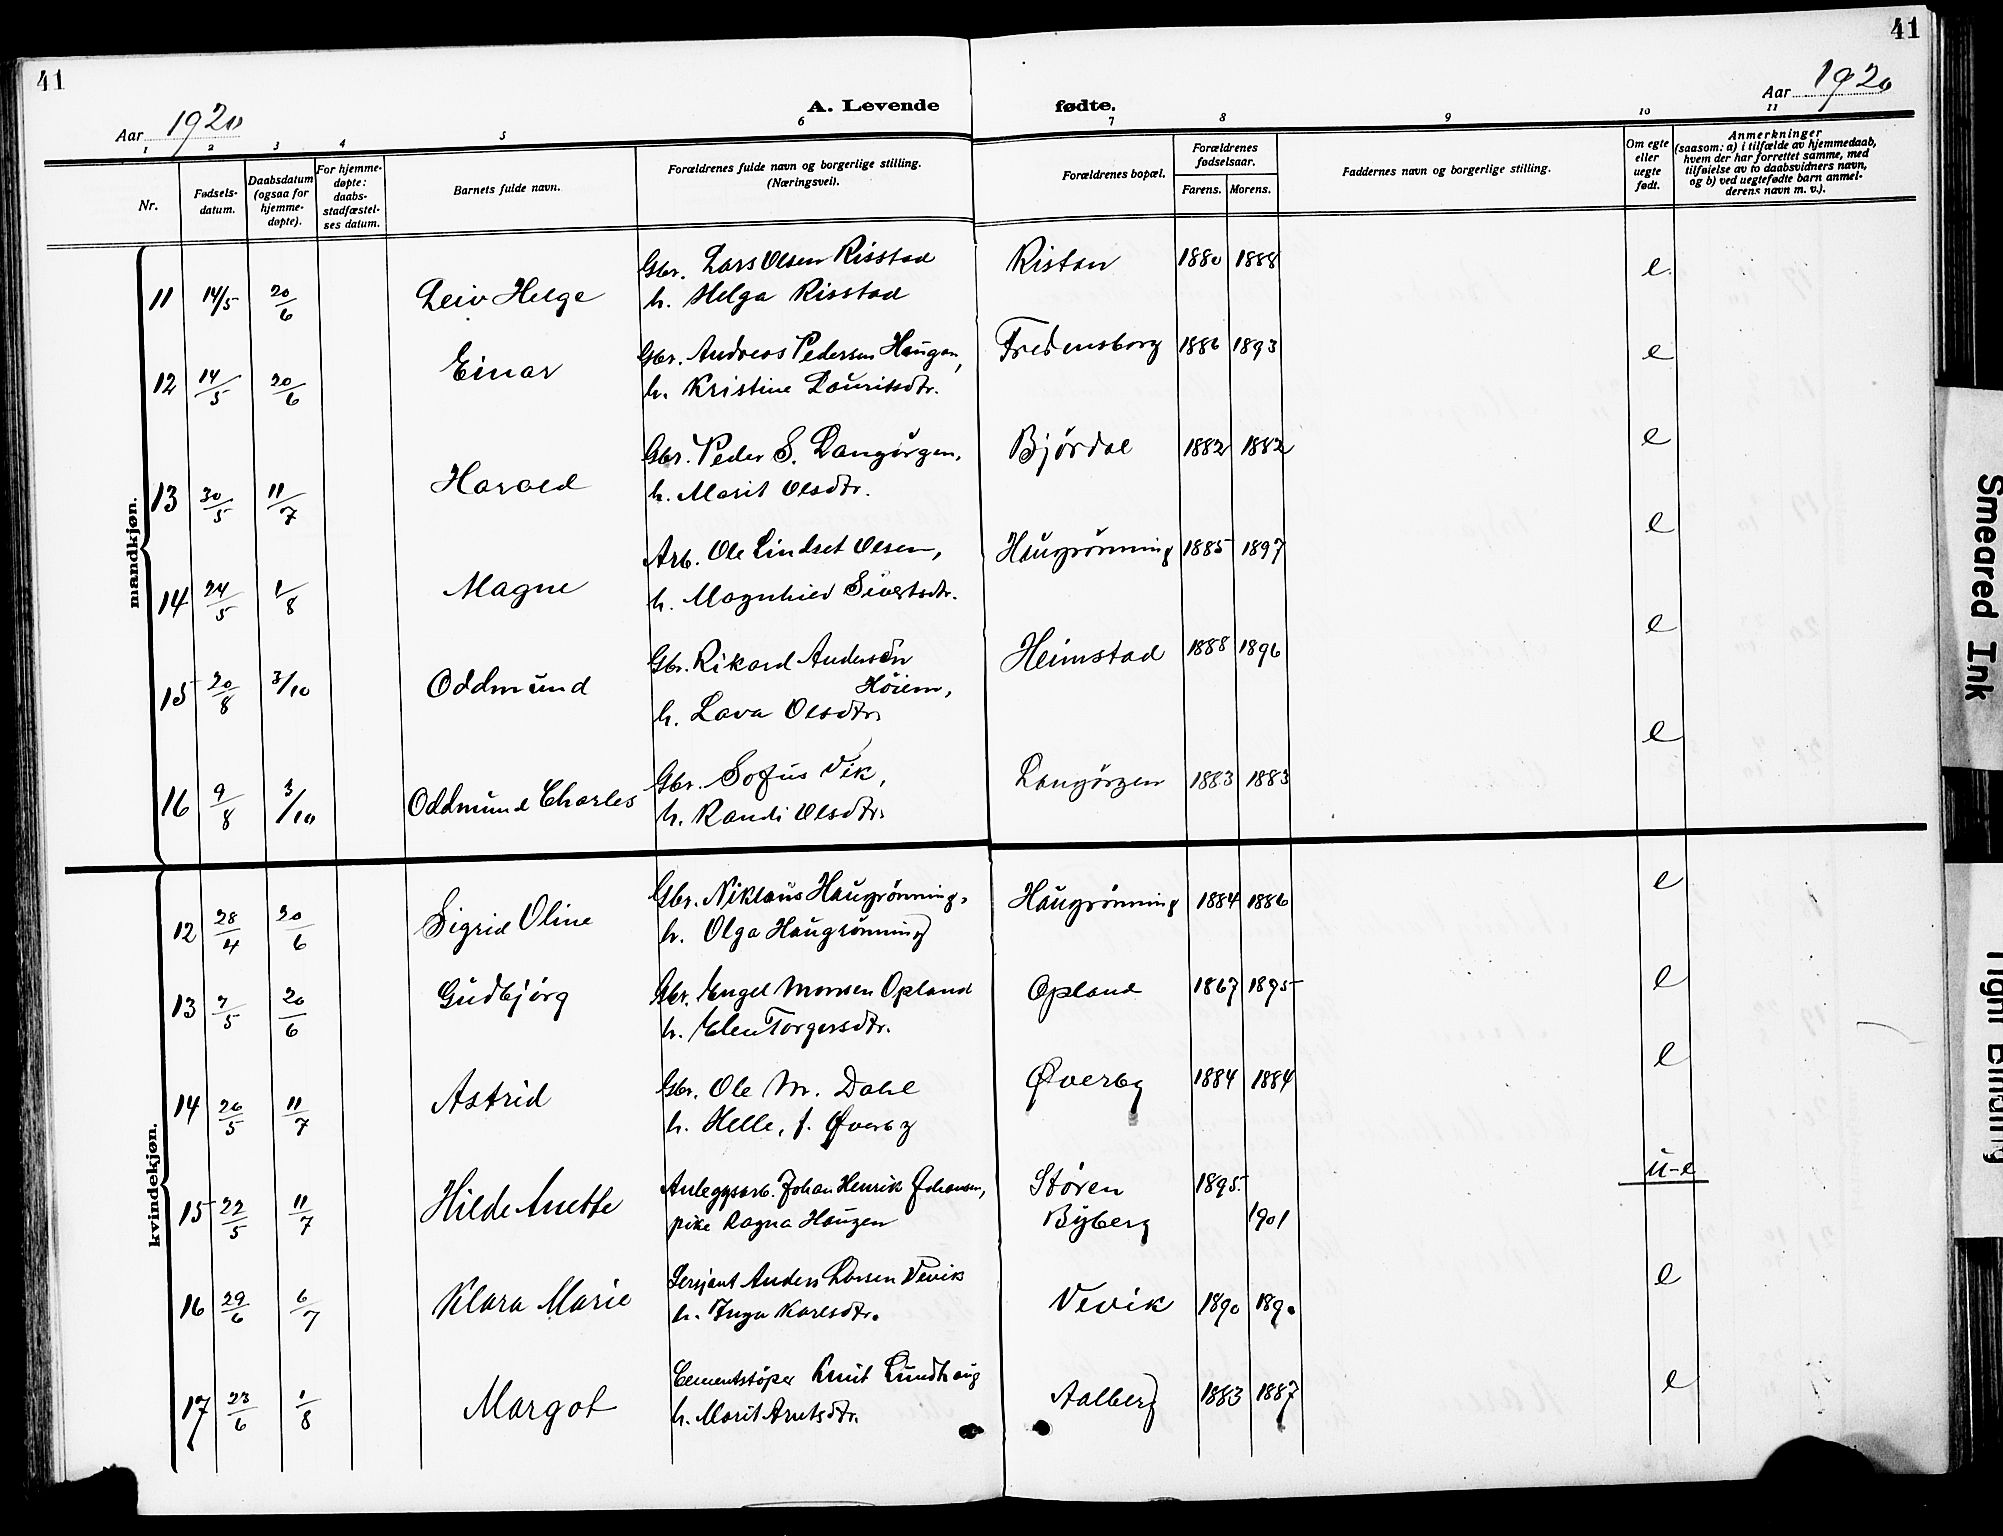 41
41
Aar 1920
A. Levende fødte.
Aar 1920
1 2 3 4 5 6 7 8 9 10 11
Nr.
Fødsels-
datum.
Daabsdatum
(ogsaa for
hjemme-
døpte).
For hjemme-
døpte:
daabs-
stadfæstel-
ses datum.
Barnets fulde navn.
Forældrenes fulde navn og borgerlige stilling.
(Næringsvei).
Forældrenes bopæl.
Forældrenes
fødselsaar.
Farens. Morens.
Faddernes navn og borgerlige stilling.
Om egte
eller
uegte
født.
Anmerkninger
(saasom: a) i tilfælde av hjemmedaab,
hvem der har forrettet samme, med
tilføielse av to daabsvidners navn,
og b) ved uegtefødte barn anmel-
derens navn m. v.).
mandkjøn.
Gbr. Lars Olsen Risstad Ristan 1880 1888 e.
11 14/5 20/6 Leiv Helge h. Helga Risstad
Gbr. Andreas Pedersen Haugan, Fredensborg 1886 1893 e
12 14/5 20/6 Einar h. Kristine Lauritsdtr.
Gbr. Peder S. Langørgen, Bjørdal 1882 1882 e
13 30/5 11/7 Harald h. Marit Olsdtr.
Arb. Ole Lindset Olsen, Haugrønning 1885 1897 e
14 24/5 1/8 Magne h. Magnhild Sivertsdtr.
Gbr. Rikard Andersen Heimstad 1888 1896 e
Høiem,
15 20/8 3/10 Oddmund h. Lava Olsdtr.
Gbr. Sofus Vik, Langørgen 1883 1883 e
16 9/8 3/10 Oddmund Charles h. Randi Olsdtr.
kvindekjøn.
Gbr. Niklaus Haugrønning, Haugrønning 1884 1886 e
12 28/4 20/6 Sigrid Oline h. Olga Haugrønning
Gbr. Engel Monsen Opland Opland 1867 1895 e
13 7/5 20/6 Gudbjørg h. Elen Torgersdtr.
Gbr. Ole M. Dahl Øverby 1884 1884 e
14 26/5 11/7 Astrid h. Helle, f. Øverby
Anleggsarb. Johan Henrik Johansen, Støren 1895 u-e
15 22/5 11/7 Hilde Anette pike Ragna Haugen Byberg 1901
Sersjant Anders Larsen Vevik e
16 29/6 6/7 Klara Marie h. Inga Karlsdtr. Vevik 1890 1890
Cementstøper Knut Lundhaug e
17 23/6 1/8 Margot h. Marit Arntsdtr. Aalberg 1883 1887
Smeared Ink
Tight Binding